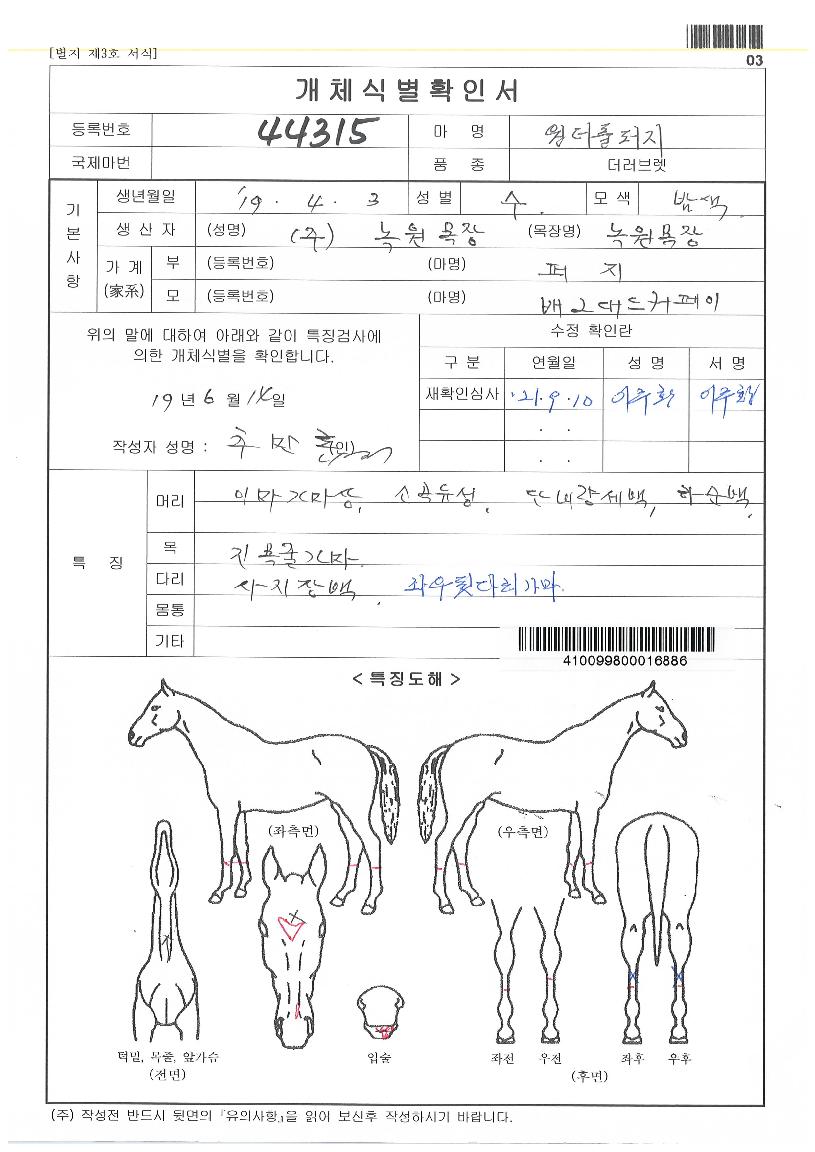 [별지 제3호 서식]
03
개체식별확인서
등록번호 44315 마 명 원더풀퍼지
국제마번 품 종 더러브렛
기본사항
생년월일 '19 . 4 . 3 성 별 수 . 모 색 밤색
생 산 자 (성명) (주) 녹원목장 (목장명) 녹원목장
가 계 (家系) 부 (등록번호) (마명) 퍼 지
모 (등록번호) (마명)
위의 말에 대하여 아래와 같이 특징검사에
의한 개체식별을 확인합니다.
19 년 6 월 14 일
작성자 성명 : 추 (인)
수정 확인란
구 분 연월일 성 명 서 명
재확인심사 '21.9.10
. .
. .
특 징
머리 이마가마 . 소곡유성 . 단비량세백, 하순백 .
목 진목줄가마
다리 사지장백 . 좌우뒷다리가마.
몸통
기타
410099800016886
< 특징도해 >
(좌측면) (우측면)
턱밑, 목줄, 앞가슴
(전면)
입술
좌전 우전 좌후 우후
(후면)
(주) 작성전 반드시 뒷면의 『유의사항』을 읽어 보신후 작성하시기 바랍니다.